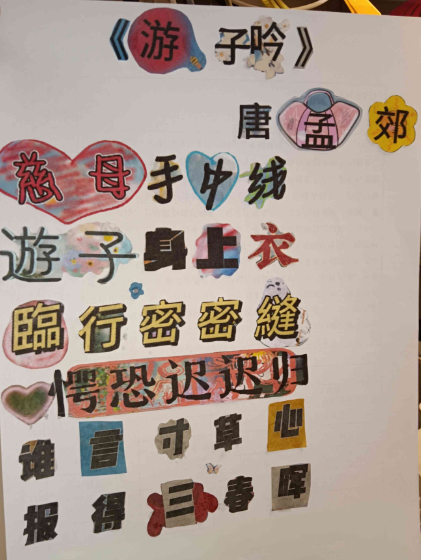 《游子吟》
唐 孟郊
慈母手中线
遊子身上衣
臨行密密縫
愕恐迟迟归
谁言寸草心
报得三春晖